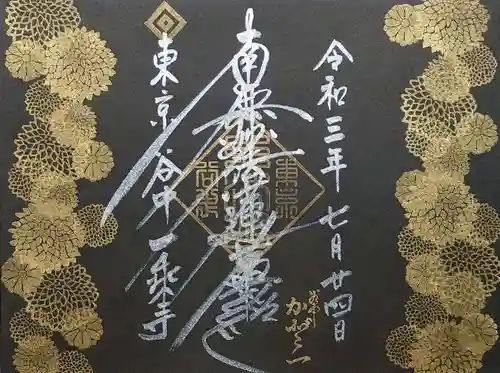 令和三年七月廿四日
南無妙法蓮華経
東京谷中一乗寺